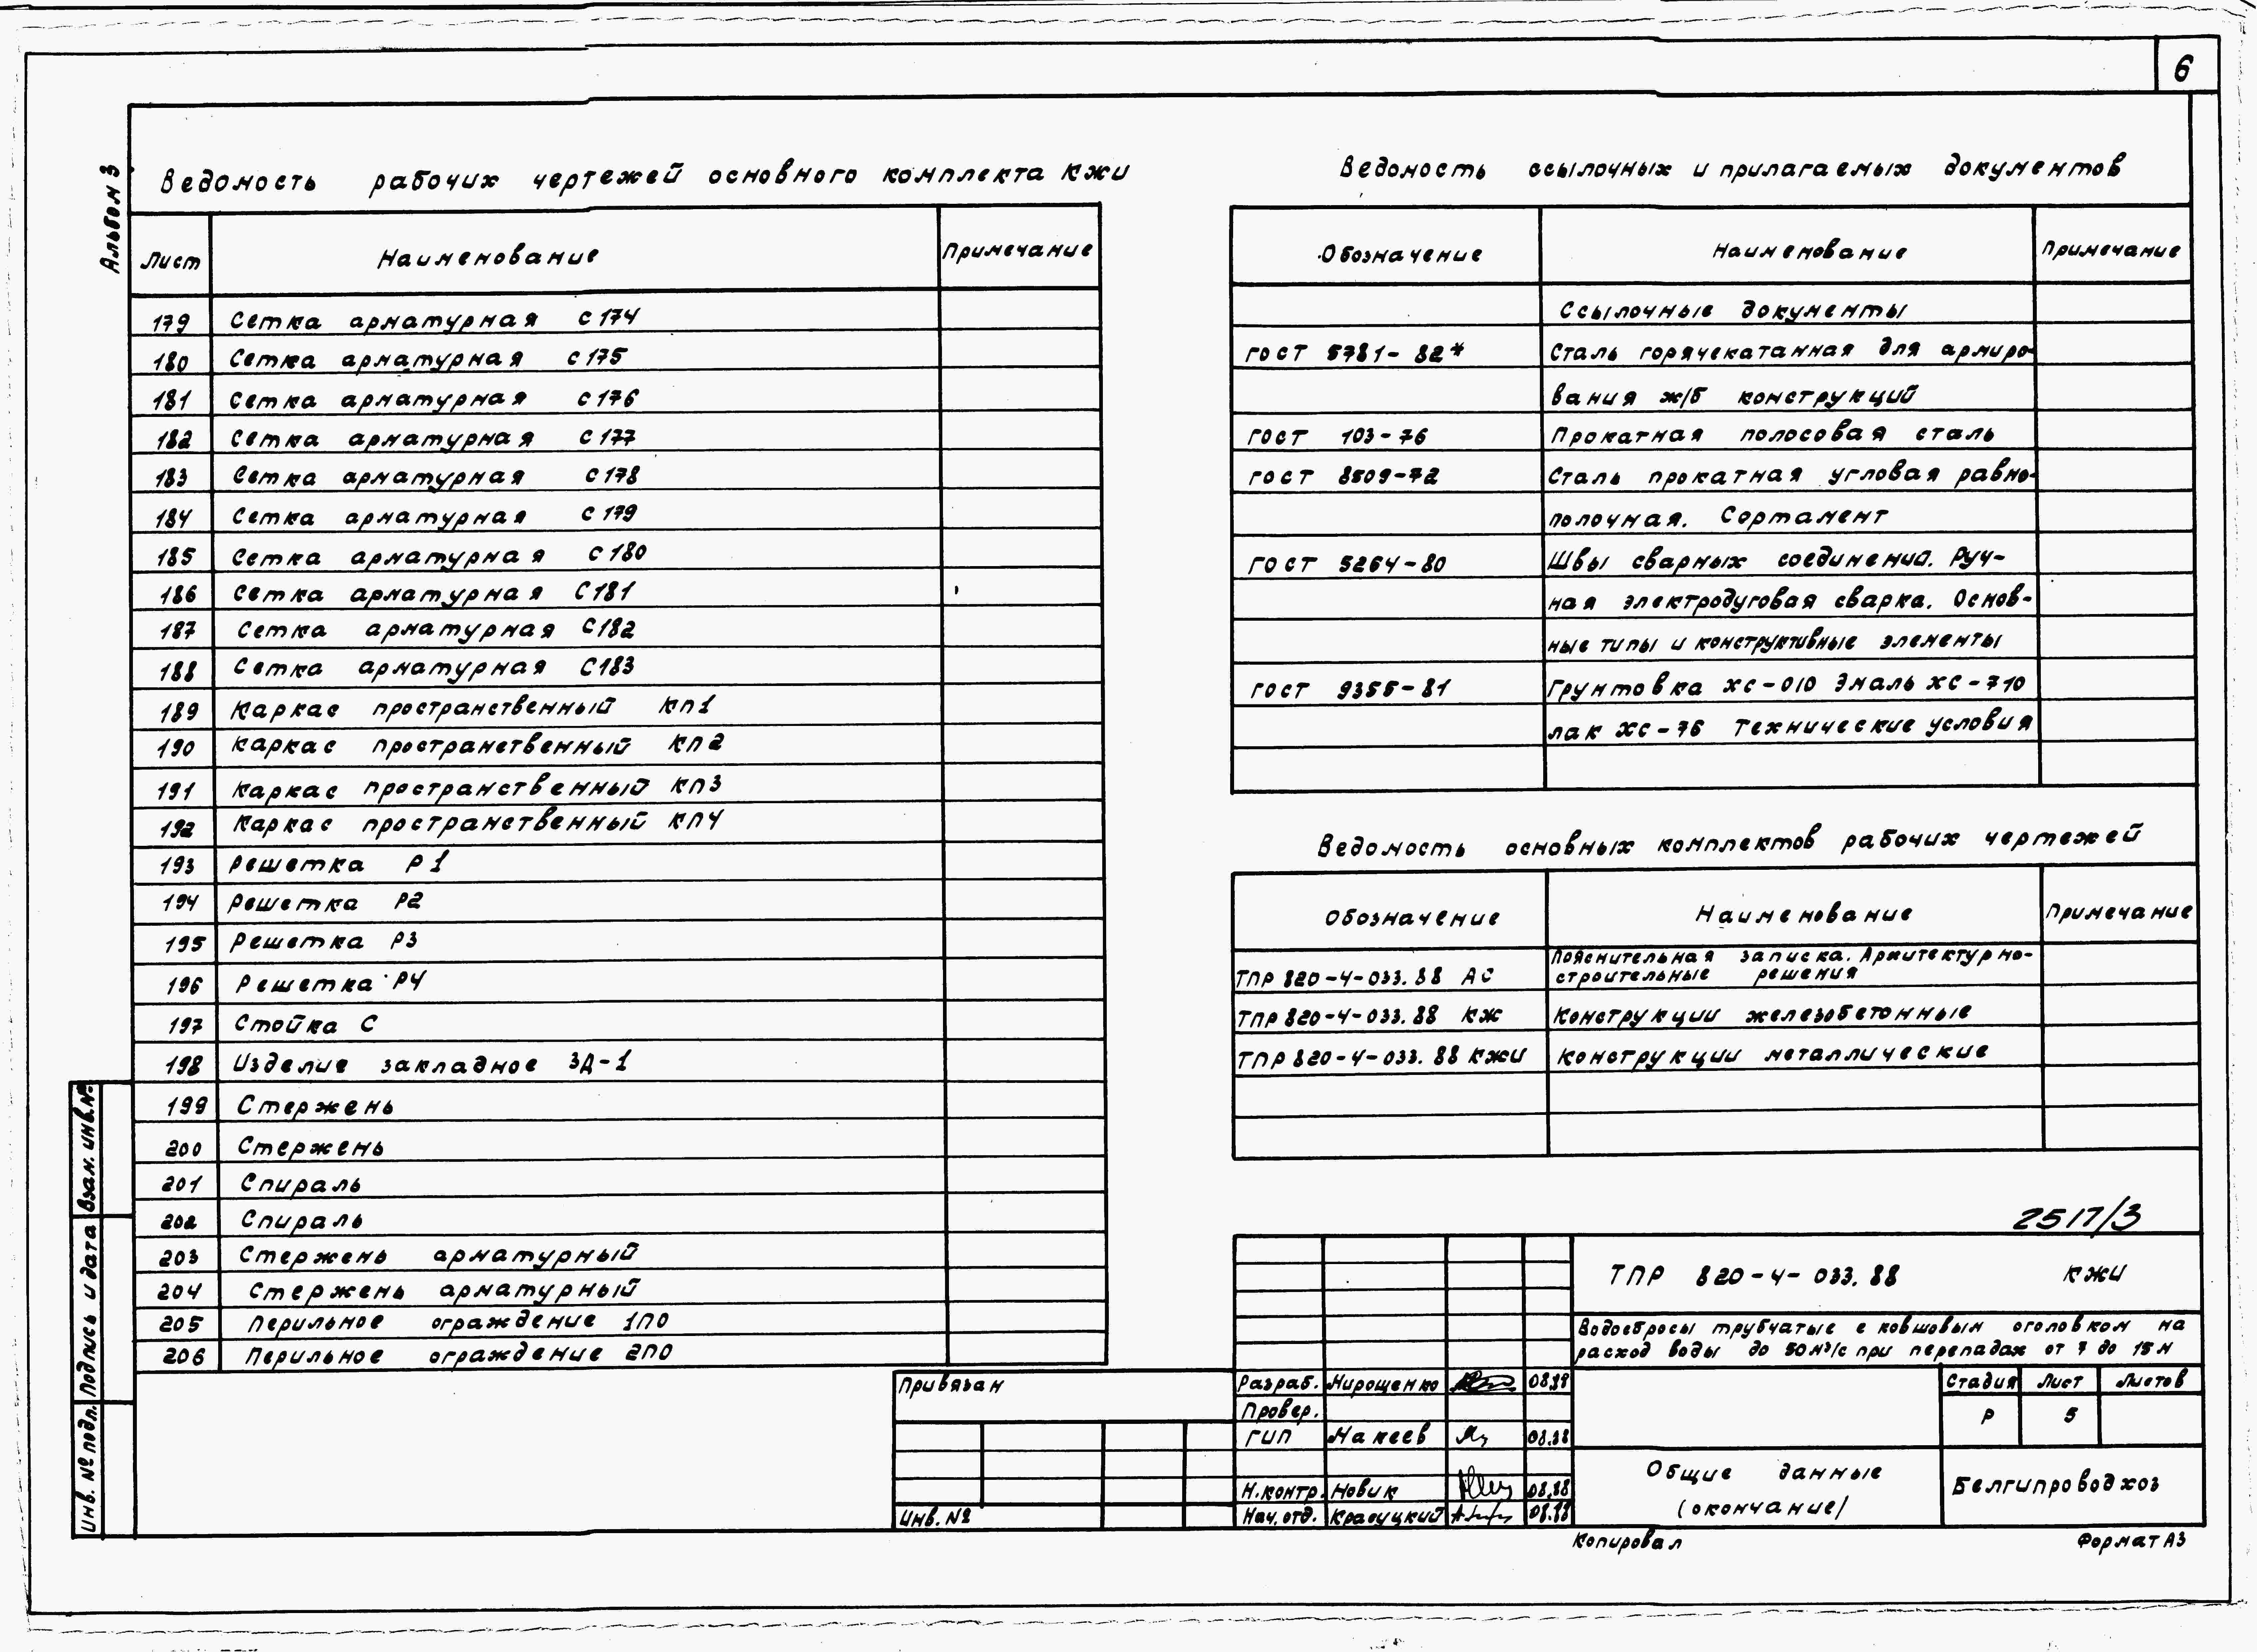 6
Альбом 3
Ведомость рабочих чертежей основного комплекта КЖИ
Лист Наименование Примечание
179 Сетка арматурная С174
180 Сетка арматурная С175
181 Сетка арматурная С176
182 Сетка арматурная С177
183 Сетка арматурная С178
184 Сетка арматурная С179
185 Сетка арматурная С180
186 Сетка арматурная С181
187 Сетка арматурная С182
188 Сетка арматурная С183
189 Каркас пространственный КП1
190 Каркас пространственный КП2
191 Каркас пространственный КП3
192 Каркас пространственный КП4
193 Решетка Р1
194 Решетка Р2
195 Решетка Р3
196 Решетка Р4
197 Стойка С
198 Изделие закладное ЗД-1
199 Стержень
200 Стержень
201 Спираль
202 Спираль
203 Стержень арматурный
204 Стержень арматурный
205 Перильное ограждение 1ПО
206 Перильное ограждение 2ПО
Ведомость ссылочных и прилагаемых документов
Обозначение Наименование Примечание
Ссылочные документы
ГОСТ 5781-82* Сталь горячекатанная для армиро-
вания ж/б конструкций
ГОСТ 103-76 Прокатная полосовая сталь
ГОСТ 8509-72 Сталь прокатная угловая равно-
полочная. Сортамент
ГОСТ 5264-80 Швы сварных соединений. Руч-
ная электродуговая сварка. Основ-
ные типы и конструктивные элементы
ГОСТ 9355-81 Грунтовка ХС-010 Эмаль ХС-710
лак ХС-76 Технические условия
Ведомость основных комплектов рабочих чертежей
Обозначение Наименование Примечание
Пояснительная записка. Архитектурно-
ТПР 820-4-033.88 АС строительные решения
ТПР 820-4-033.88 КЖ Конструкции железобетонные
ТПР 820-4-033.88 КЖИ Конструкции металлические
2517/3
ТПР 820-4-033.88 КЖИ
Водосбросы трубчатые с ковшовым оголовком на
расход воды до 50 м³/с при перепадах от 7 до 15 м
Привязан
Инв. №
Разраб. Мирощенко 08.88
Провер.
ГИП Макеев 08.88
Н.контр. Новик 08.88
Нач. отд. 08.88
Стадия Лист Листов
Р 5
Общие данные
(окончание)
Белгипроводхоз
Копировал Формат А3
Взам. инв.№
Подпись и дата
Инв. № подл.